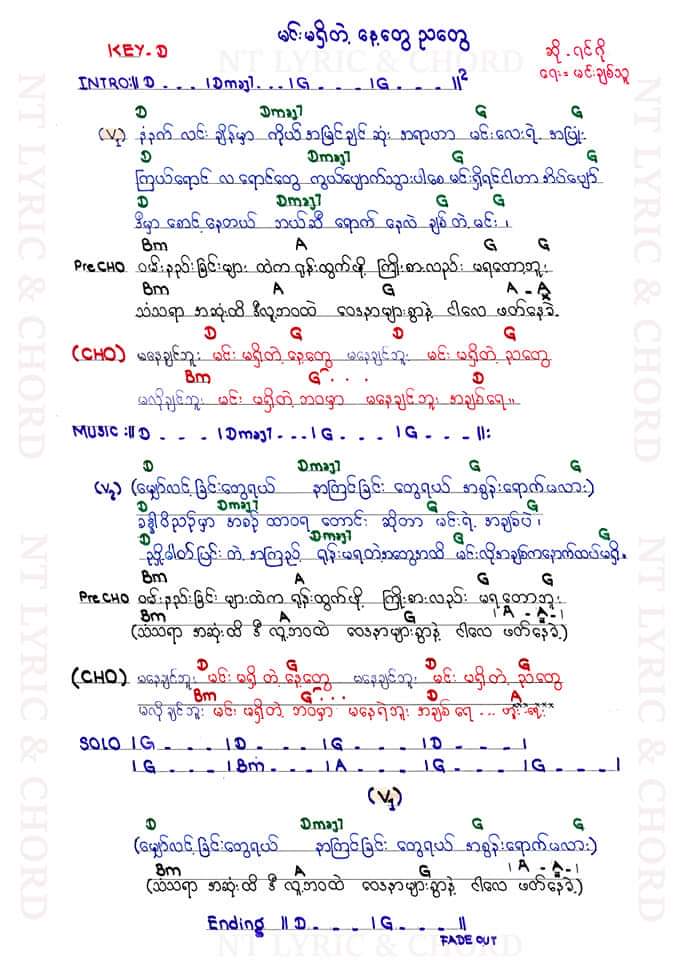 မင်းမရှိတဲ့ နေ့တွေ ညတွေ
KEY-D
NT LYRIC & CHORD
ဆို - ရင်ဂို
ရေး = မင်းချစ်သူ
INTRO:|| D - - - | Dmaj7 - - - | G - - - | G - - - ||²
D Dmaj7 G G
(V1) နံနက် လင်း ချိန်မှာ ကိုယ် အမြင်ချင် ဆုံး အရာဟာ မင်းလေးရဲ့ အပြုံး
D Dmaj7 G G
ကြယ်ရောင် လ ရောင်တွေ ကွယ်ပျောက်သွားပါစေ မင်းရှိရင်ငါဟာ အိပ်ပျော်
D Dmaj7 G G
ဒီမှာ စောင့် နေတယ် ဘယ်ဆီ ရောက် နေလဲ ချစ် တဲ့ မင်း ၊
Bm A G G
Pre CHO ဝမ်းနည်းခြင်းများ ထဲက ရုန်းထွက်ဖို့ ကြိုးစားလည်း မရတော့ဘူး
Bm A G A - A
သံသရာ အဆုံးထိ ဒီလူ့ဘဝထဲ ဝေဒနာများစွာနဲ့ ငါလေ ဖတ်နေခဲ့
D G D G
(CHO) မနေချင်ဘူး မင်း မရှိတဲ့ နေ့တွေ မနေချင်ဘူး မင်း မရှိတဲ့ ညတွေ
Bm G - - - D
မလိုချင်ဘူး မင်း မရှိတဲ့ ဘဝမှာ မနေချင်ဘူး အချစ်ရေ ။
MUSIC :|| D - - - | Dmaj7 - - - | G - - - | G - - - ||:
D Dmaj7 G G
(V2) (မျှော်လင့် ခြင်းတွေရယ် နာကြင်ခြင်း တွေရယ် အစွန်းရောက်မလား)
D Dmaj7 G G
ခန္ဓါဝိညာဉ်မှာ အစဉ် ထာဝရ တောင်း ဆိုတာ မင်းရဲ့ အချစ်ပဲ ၊
D Dmaj7 G G
ညှို့ဓါတ်ပြင်း တဲ့ အကြည့် ရုန်းမရတဲ့အတွေ့အထိ မင်းလိုအချစ်ကနောက်ထပ်မရှိ ။
Bm A G G
Pre CHO ဝမ်းနည်းခြင်း များထဲက ရုန်းထွက်ဖို့ ကြိုးစားလည်း မရတော့ဘူး
Bm A G | A - A - |
(သံသရာ အဆုံးထိ ဒီ လူ့ဘဝထဲ ဝေဒနာများစွာနဲ့ ငါလေ ဖတ်နေခဲ့)
D G D G
(CHO) မနေချင်ဘူး မင်း မရှိ တဲ့ နေ့တွေ မနေချင်ဘူး မင်း မရှိတဲ့ ညတွေ
Bm G - - - D A
မလိုချင်ဘူး မင်း မရှိတဲ့ ဘဝမှာ မနေရဲဘူး အချစ် ရေ ...
SOLO | G - - - | D - - - | G - - - | D - - - |
| G - - - | Bm - - - | A - - - | G - - - | G - - - |
D Dmaj7 G G
(မျှော်လင့် ခြင်းတွေရယ် နာကြင်ခြင်း တွေရယ် အစွန်းရောက်မလား)
Bm A G | A - A - |
(သံသရာ အဆုံးထိ ဒီ လူ့ဘဝထဲ ဝေဒနာများစွာနဲ့ ငါလေ ဖတ်နေခဲ့)
Ending || D - - - | G - - - ||
FADE OUT
NT LYRIC & CHORD
NT LYRIC & CHORD
NT LYRIC & CHORD
NT LYRIC & CHORD
NT LYRIC & CHORD